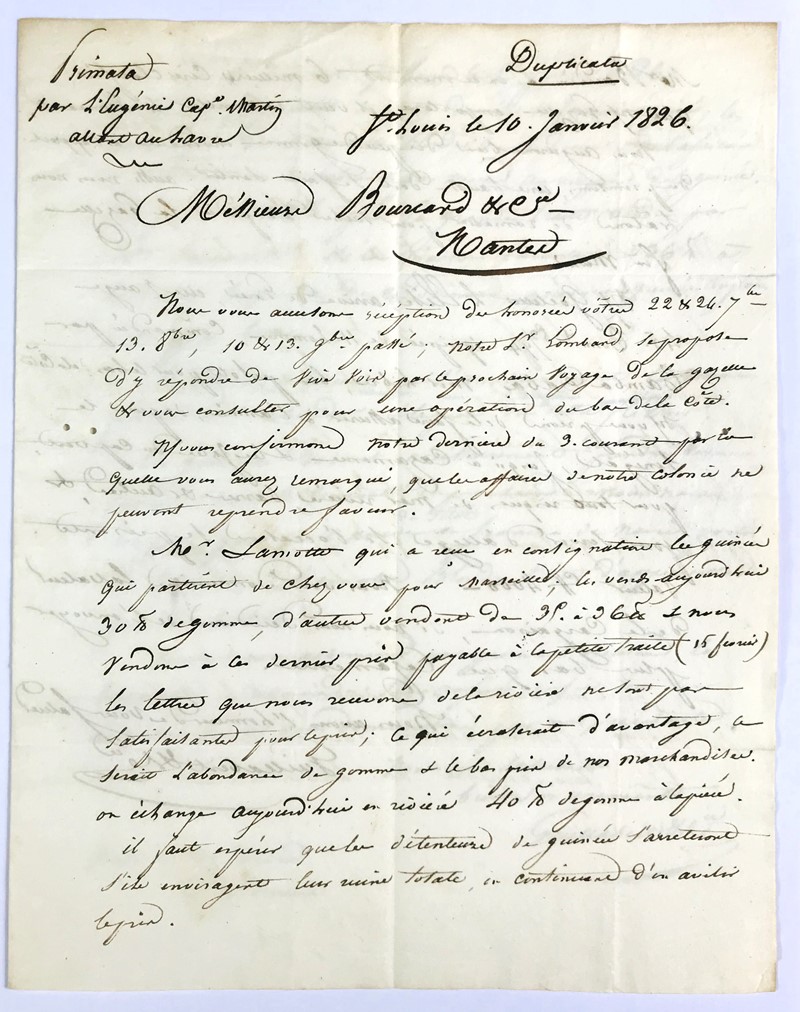 Primata
par L'Eugénie Cap.e Martin
allant au havre
Duplicata
St. Louis le 10. Janvier 1826.
Messieurs Bourcard & Cie
Nantes
Nous vous accusons réception des honorées vôtres 22 & 24. 7bre
13. 8bre, 10 & 13. 9bre passé; notre Sr. Lombard se propose
d'y répondre de vive voix par le prochain voyage de la gazelle
& vous consulter pour une opération du bas de la Côte.
Nous vous confirmons notre dernière du 3. courant par la
quelle vous aurez remarqué, que les affaires de notre colonie ne
peuvent reprendre faveur.
Mr. Lamotte qui a reçu en consignation les guinées
qui partirent de chez vous pour Marseilles, les vends aujourd'hui
30 lb de gomme, d'autres vendent de 35. à 36 lb & nous
vendons à ces dernier prix payable à la petite traite (15 fevrier)
les lettres que nous recevons de la rivière ne sont pas
satisfaisantes pour le prix; ce qui écraserait d'avantage, ce
serait l'abondance de gomme & le bas prix de nos marchandises.
on échange aujourd'hui en rivière 40 lb de gomme à la pièce.
il faut espérer que les détenteurs de guinées s'arreteront
s'ils envisagent leur ruine totale, en continuant d'en avilir
le prix.